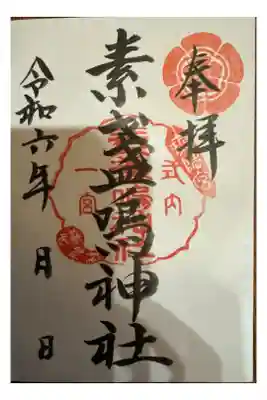 奉拝
素盞嗚神社
令和六年 月 日
式内
一宮